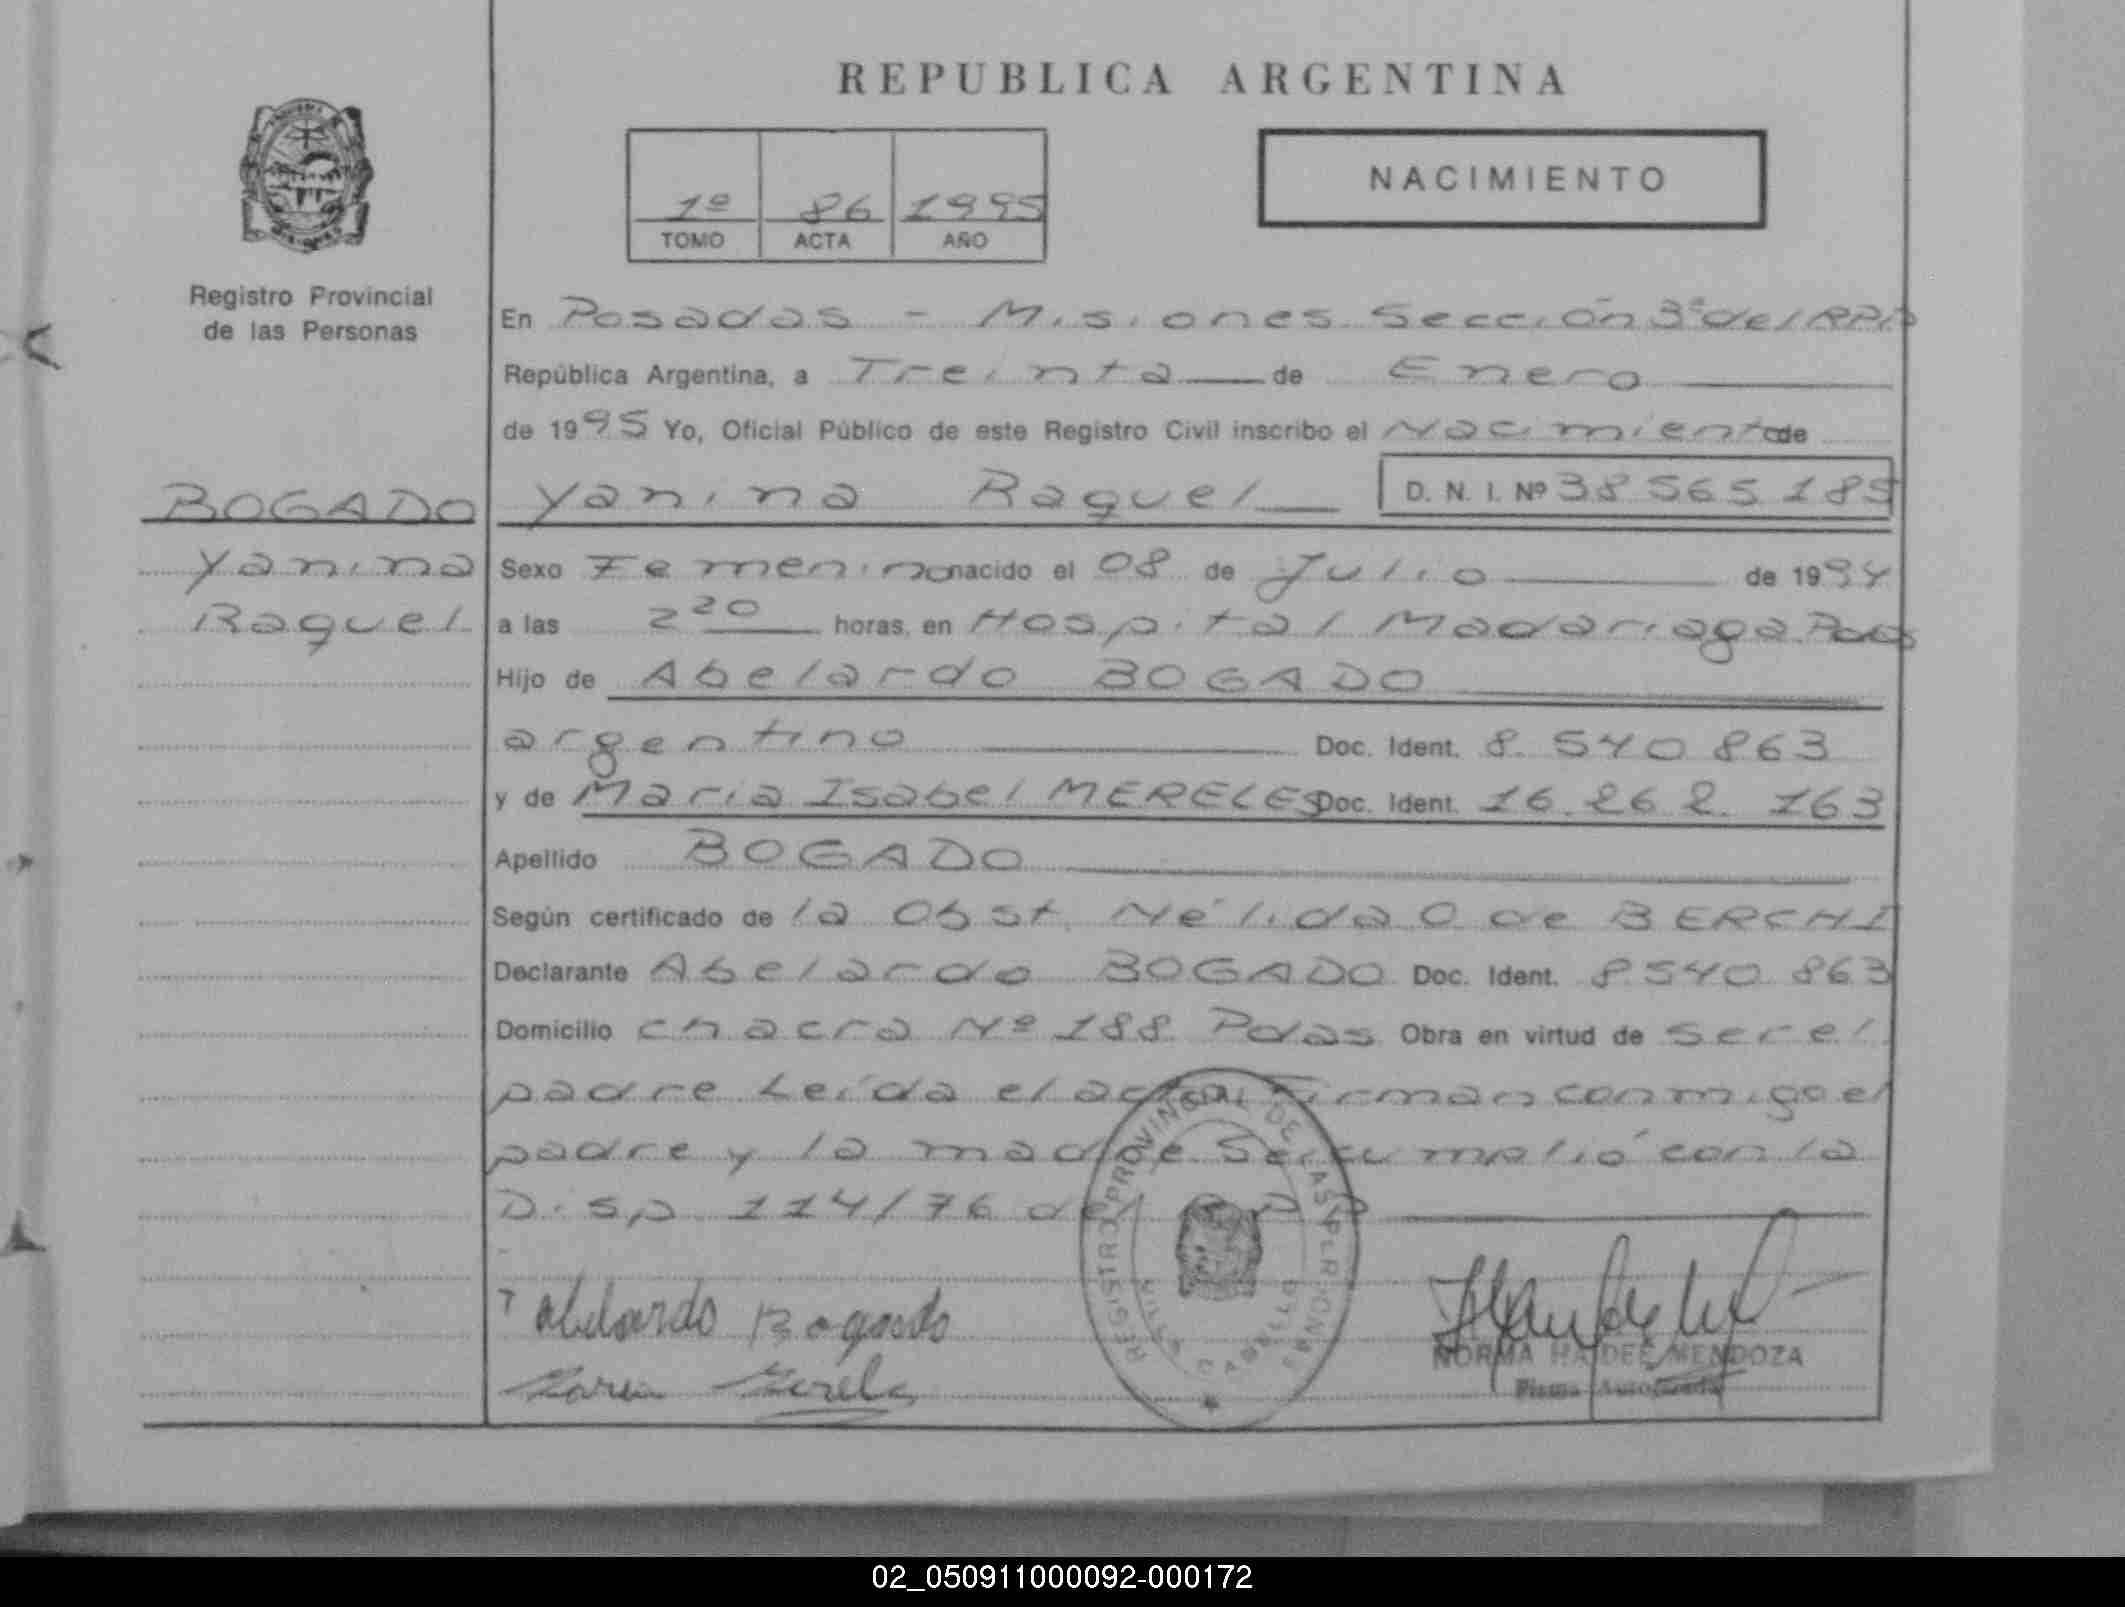 REPUBLICA ARGENTINA
1º 86 1995
TOMO ACTA AÑO
NACIMIENTO
Registro Provincial
de las Personas
En Posadas - Misiones Sección 3ª del RPP
República Argentina, a Treinta de Enero
de 1995 Yo, Oficial Público de este Registro Civil inscribo el Nacimiento de
BOGADO
Yanina
Raquel
Yanina Raquel D. N. I. Nº 38 565 185
Sexo Femenino nacido el 08 de Julio de 1994
a las 2 20 horas, en Hospital Madariaga Pdas
Hijo de Abelardo BOGADO
argentino Doc. Ident. 8.540 863
y de Maria Isabel MERELES Doc. Ident. 16.262.163
Apellido BOGADO
Según certificado de la Obst. Nélida O de BERCHI
Declarante Abelardo BOGADO Doc. Ident. 8.540.863
Domicilio chacra Nº 188 Pdas Obra en virtud de ser el
padre Leída el acta Firman conmigo el
padre y la madre Se cumplió con la
Disp. 114/76 del
Abelardo Bogado
REGISTRO PROVINCIAL DE LAS PERSONAS
NORMA HAIDEE MENDOZA
Firma Autorizada
02_050911000092-000172